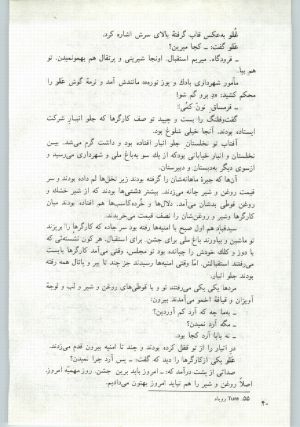 عَلّو به‌عکس قاب گرفتهٔ بالای سرش اشاره کرد.
عَلّو گفت: ـ کجا میرین؟
ـ فرودگاه. میریم استقبال. اونجا شیرینی و پرتقال هم بهمونمیدن. تو
هم بیا.
مأمور شهرداری بادك و پوز نوره‌ه ماندتش آمد و نرمهٔ گوش عَلّو را
محکم کشید: «دِ برو گم شو!
ـ قرمساق نونْ كَمّی!»
گفت‌ولنگ را بست و چپید تو صف کارگرها که جلو انبار شرکت
ایستاده بودند. آنجا خیلی شلوغ بود.
آفتاب تو نخلستان جلو انبار افتاده بود و داشت گرم می‌شد. بین
نخلستان و انبار خیابانی بود که از یك سو به‌باغ ملی و شهرداری می‌رسید و
ازسوی دیگر به‌دبستان و دبیرستان.
آن‌ها که جیرهٔ ماهانه‌شان را گرفته بودند زیر نخل‌ها لم داده بودند و سر
قیمت روغن و شیر چانه می‌زدند. بیشتر دشتی‌ها بودند که از شیر خشك و
روغن قوطی بدشان می‌آمد. دلال‌ها و خرده‌کاسب‌ها هم افتاده بودند میان
کارگرها وشیر و روغن‌شان را نصف قیمت می‌خریدند.
سیدقیام هم اول صبح با امنیه‌ها رفته بود سر جاده که کارگرها را بریزند
تو ماشین و بیاورند باغ ملی برای جشن. برای استقبال، هر کون نشسته‌ئی که
با دوز و کلك خودش را چپانده بود تو مجلس، وقتی می‌آمد کارگرها بایست
می‌رفتند استقبالش. امّا وقتی امنیه‌ها رسیدند جز چند تا پیر و پاتال همه رفته
بودند جلو انبار.
مردها یکی یکی می‌رفتند تو و با قوطی‌های روغن و شیر و لب و لوچهٔ
آویزان و قیافهٔ اخمو می‌آمدند بیرون:
ـ به‌ما چه که آرد کم آوردین؟
ـ مگه آرد نمیدن؟
ـ نه بابا آرد کجا بود.
در انبار را از تو قفل کرده بودند. و چند تا امنیه بیرون قدم می‌زدند.
عَلّو یکی ازکارگرها را دید که گفت: ـ پس آرد چرا نمیدن؟
صدائی از پشت درآمد که: ـ باید برین جشن. روز مهمیه امروز.
اصلاً روغن و شیر را هم نباید امروز بهتون می‌دادیم.
۴۰
۵۵. Ture رویداد